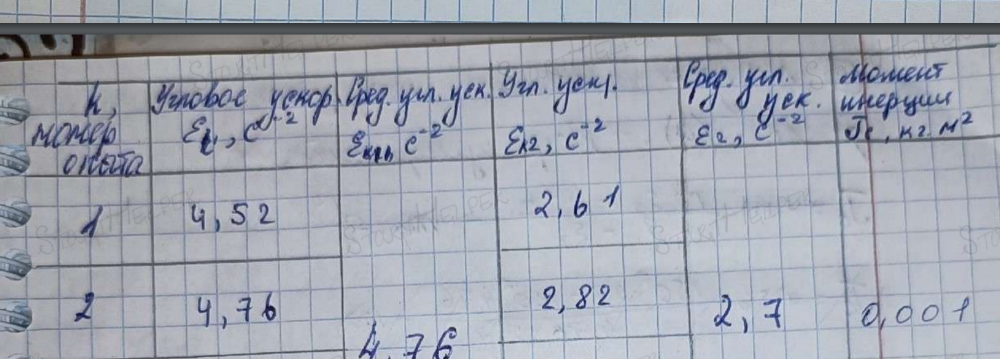 k, номер опыта
Угловое ускор. ε, с⁻²
Сред. угл. уск. с⁻²
Угл. уск. εk2, с⁻²
Сред. угл. уск. ε2, с⁻²
Момент инерции кг. м²
1 4,52 2,61
2 4,76 4,76 2,82 2,7 0,001